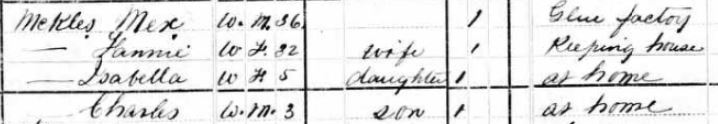 McKles Mex W. M. 36 1 Glue factory
— Fannie W F 32 wife 1 Keeping house
— Isabella W F 5 daughter 1 at home
— Charles W. M. 3 son 1 at home